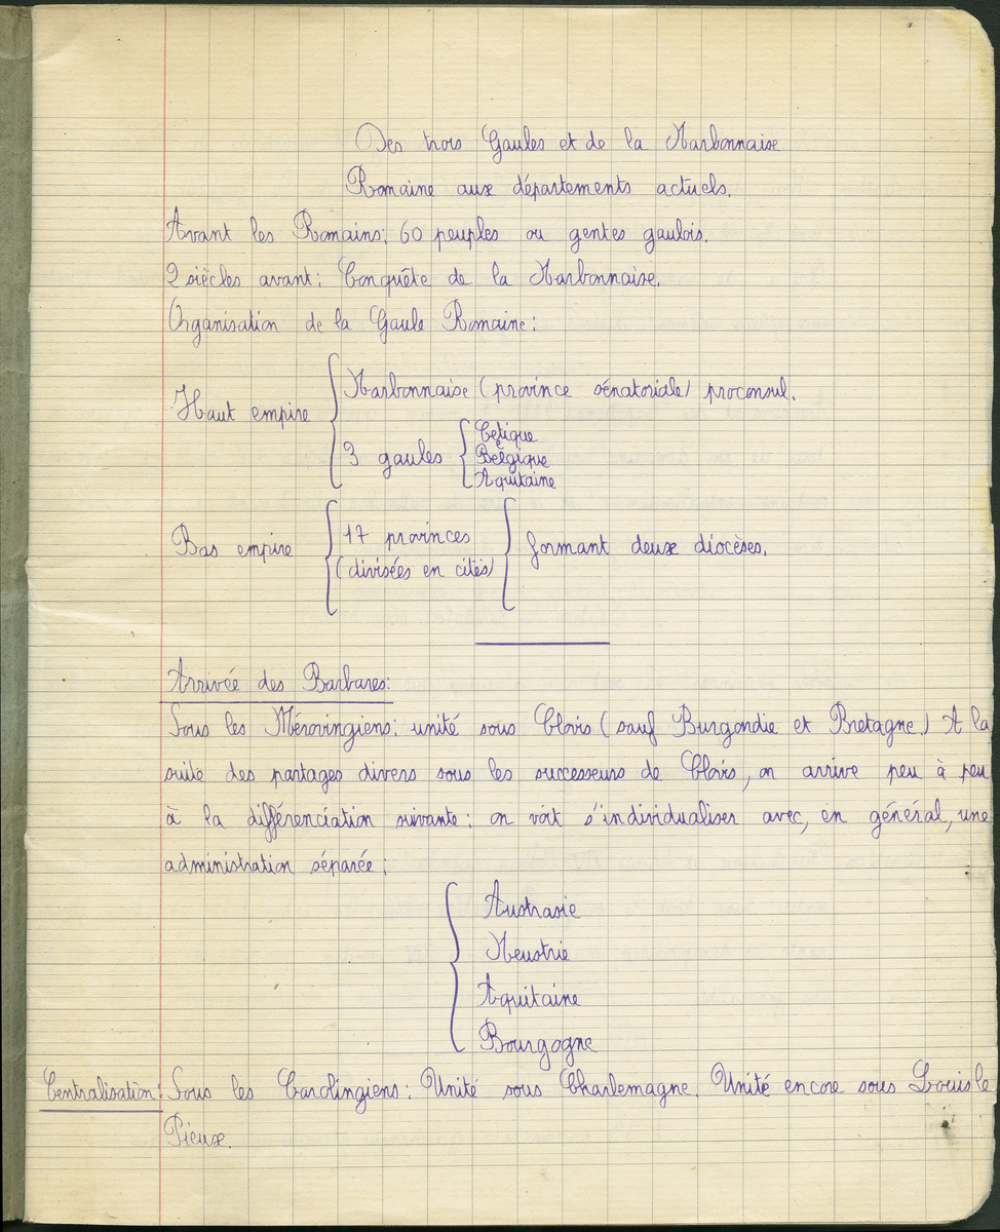 Des trois Gaules et de la Narbonnaise
Romaine aux départements actuels.
Avant les Romains: 60 peuples ou gentes gaulois.
2 siècles avant: Conquête de la Narbonnaise.
Organisation de la Gaule Romaine:
Haut empire { Narbonnaise (province sénatoriale) proconsul.
3 gaules { Celtique
Belgique
Aquitaine
Bas empire { 17 provinces
(divisées en cités) { formant deux diocèses.
Arrivée des Barbares:
Sous les Mérovingiens: unité sous Clovis (sauf Burgondie et Bretagne.) A la
suite des partages divers sous les successeurs de Clovis, on arrive peu à peu
à la différenciation suivante: on voit s'individualiser avec, en général, une
administration séparée:
{ Austrasie
Neustrie
Aquitaine
Bourgogne
Centralisation: Sous les Carolingiens: Unité sous Charlemagne. Unité encore sous Louis le
Pieux.